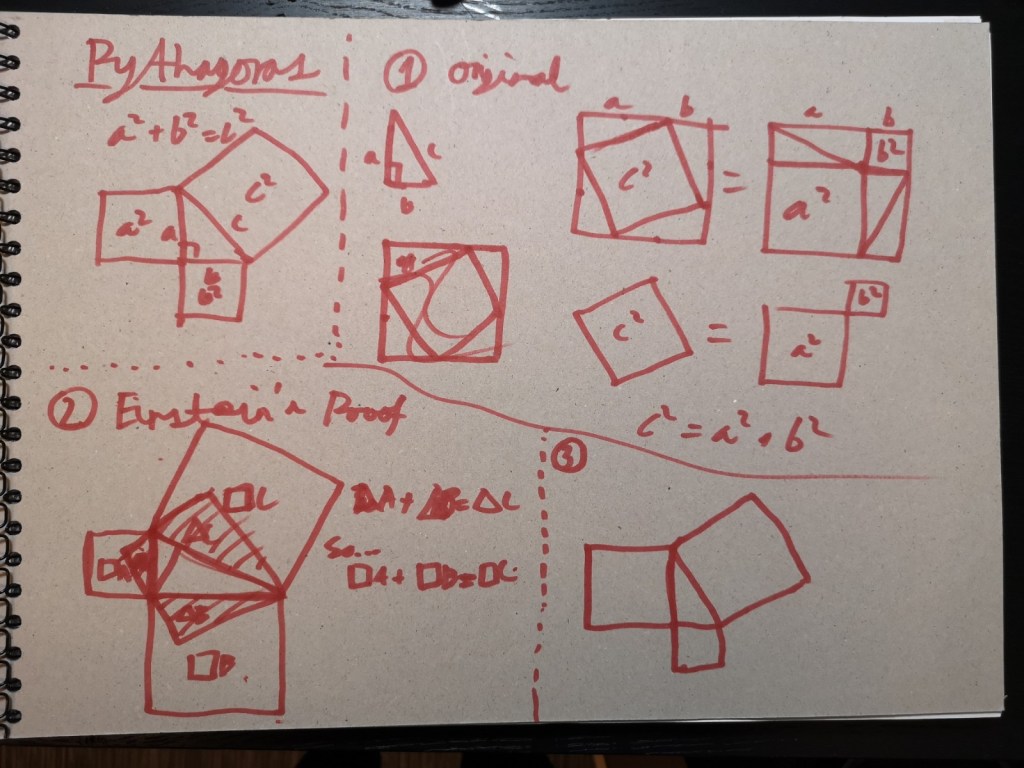 Pythagoras
a²+b²=c²
a²
a
c
c²
b
b²
① original
a
c
b
a b
c²
=
a b
b²
a²
c²
=
b²
a²
c² = a² + b²
② Einstein's Proof
□C
△C
□A
△B
□B
△A + △B = △C
So...
□A + □B = □C
③